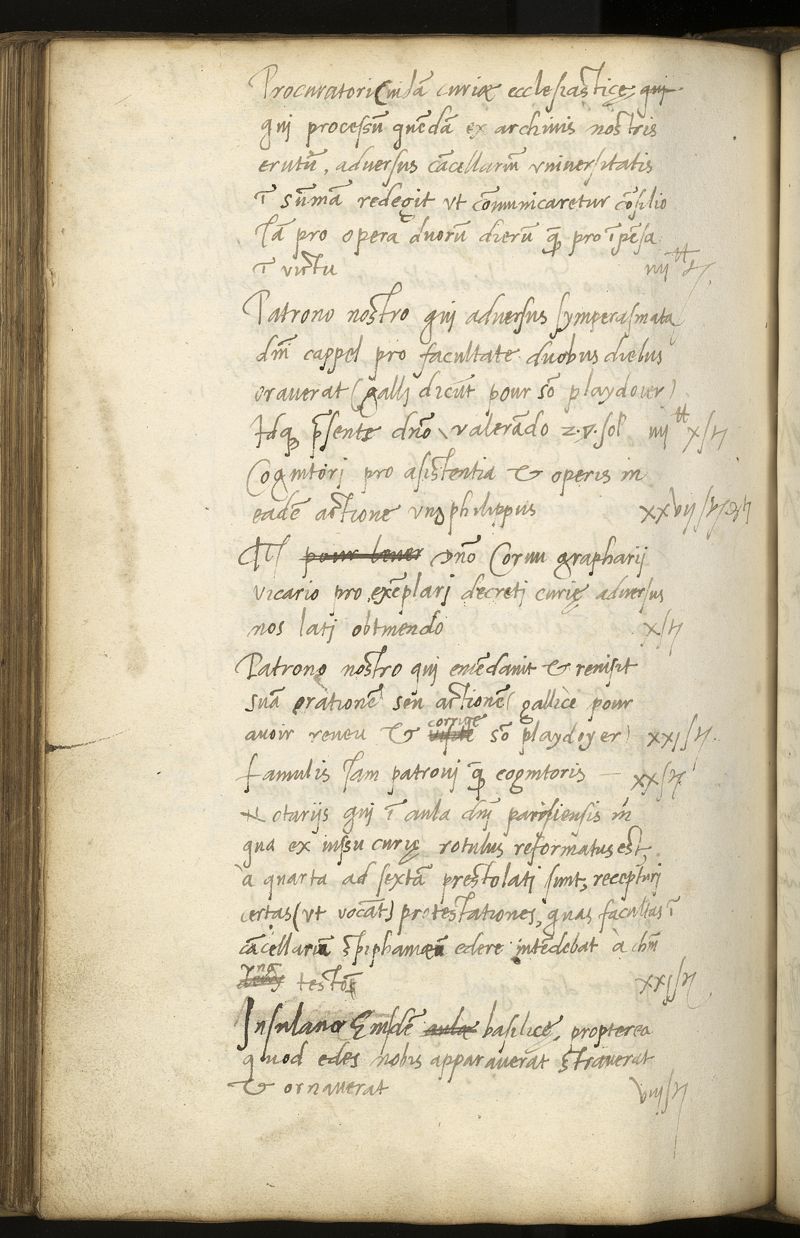 Procuratori Cuidā curiæ ecclesiasticę qui
qui processū quēdā ex archiuis nostris
erutū, aduersus cācellariū vniuersitatis
ī sūmā redegit vt cōmunicaretur cōsilio
Tā pro opera duorū dierū q̄ꝫ pro īpēsa
ī victu iiij tt
Patrono nostro qui aduersus symperasmata
dnī cappel pro facultate duobus diebus
orauerat (galli dicūt pour sō playdoier)
Idqꝫ p̄sente dnō valerādo 2.v.sol iiij tt x s
Cognitori pro asistentia & operis in
eadē actione vn9 philippus xxvij s
pour lauer dnō Cornu grapharij
vicario pro exēplari decreti curię aduersus
nos lati obtinendo x s
Patrono nostro qui emēdauit & reuisit
suā orationē seu actionē (gallicè pour
auoir reueu & corrigé sō playdoyer) xxj s
famulis Tam patroni q̄ꝫ cognitoris — xx s
Notarijs qui ī aula dnī parisiensis in
qua ex iussu curię rotulus reformatus est,
à quarta ad sextā prestolati sunt, recepturi
certas (vt vocāt) protestationes, quas facultas ī
cācellariū edere intēdebat à
testō xxj s
Insulano Eiusdē aulæ basilicę, propterea
quod edes nobis apparauerat strauerat
& ornauerat viij s